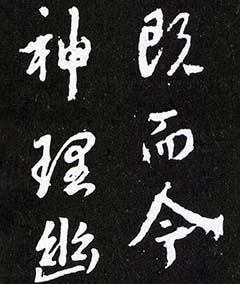 既而今
神理幽